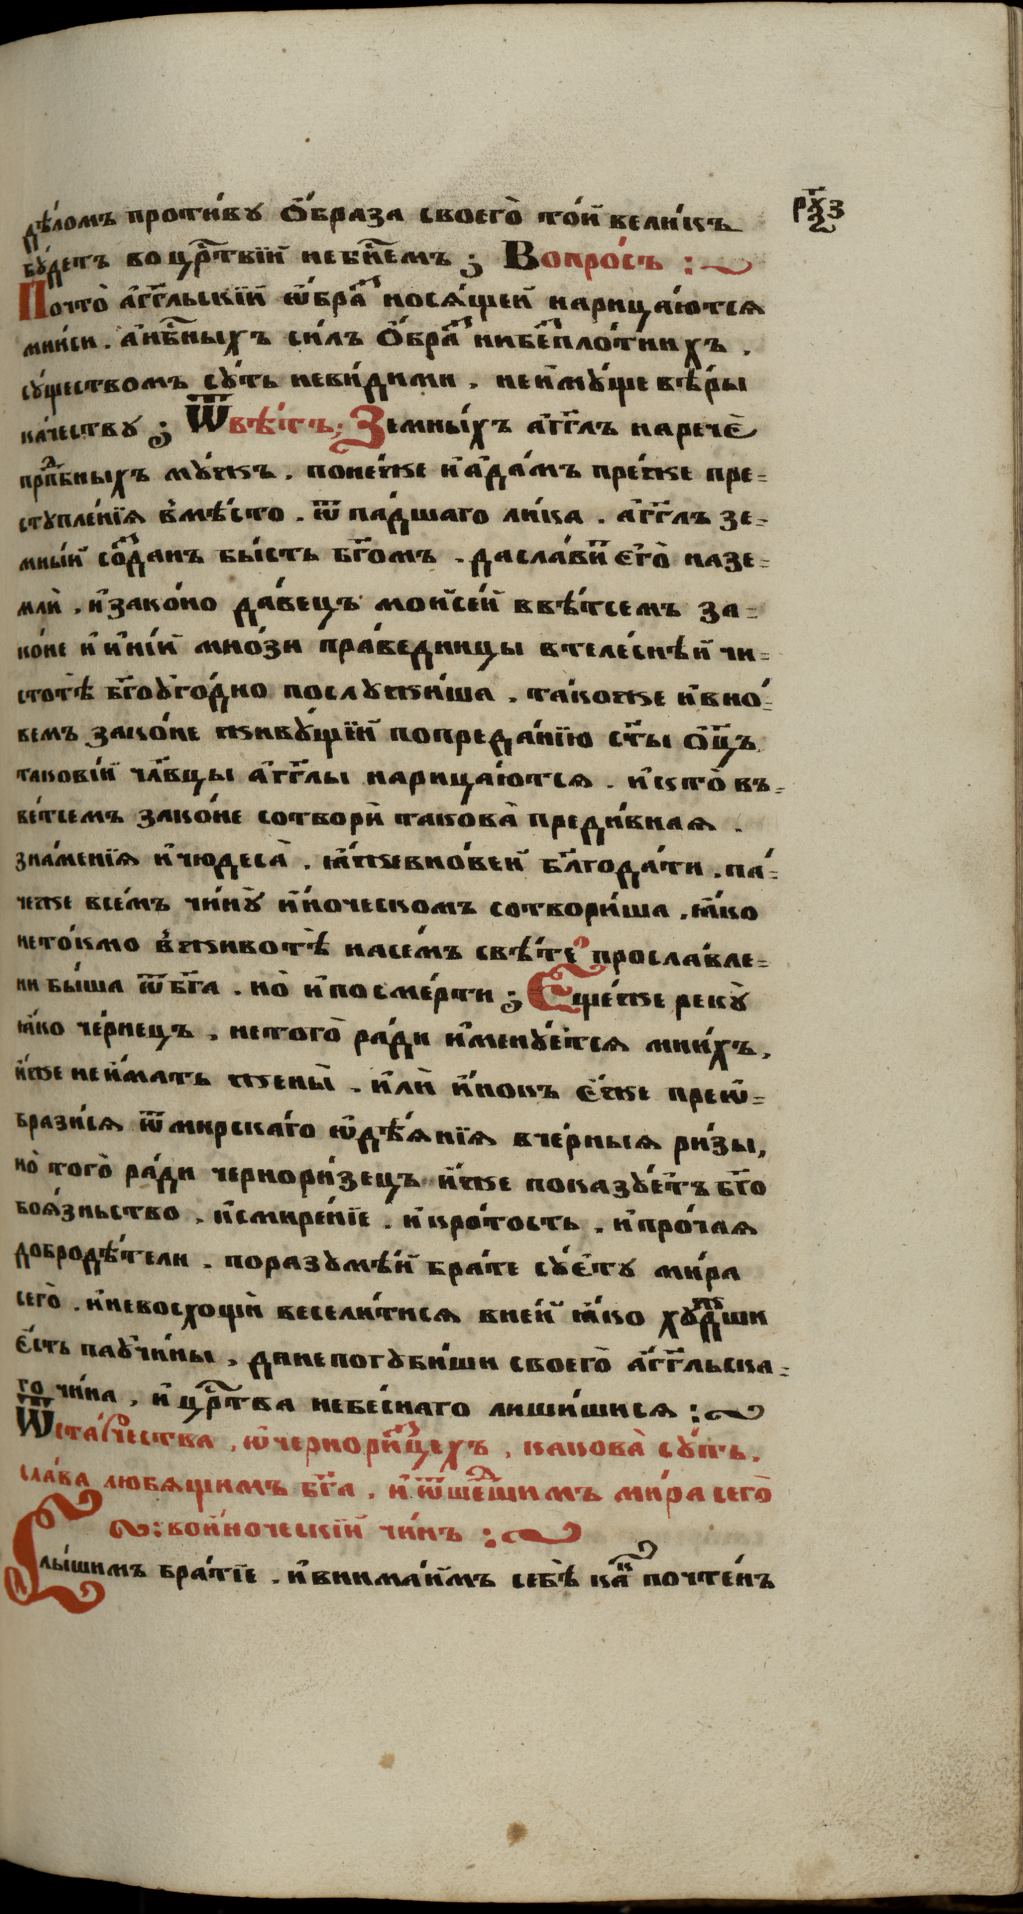 рч҃з
дѣ́ломъ проти́ву ѻ҆́браза своегѡ̀ то́й вели́къ
бу́детъ во црⷭ҇твїй небнⷭ҇емъ ; Вопро́съ :~
Почто̀ а҆́гг҃льскїй ѡ҆́браⷥ нося́щей нарица́ютсѧ
мни́си . а҆ нбⷭ҇ныхъ си́лъ ѻ҆́браⷥ и҆ беⷥпло́тныхъ ,
су́ществомъ су́ть неви́дими , не и҆му́ще вѣ́ры
ка́честву ; Ѿвѣ́тъ ; Земны́хъ а҆́гг҃лъ наречѐ
прпⷣбныхъ му́жъ . поне́же и҆ а҆да́мъ пре́же пре=
ступле́нїѧ в̾мѣ́сто . ѿ па́дшаго ли́ка . а҆́гг҃лъ зе=
мны́й соⷥданъ бы́сть бг҃омъ . да сла́витъ є҆гѡ̀ на зе=
млѝ . и҆ зако́но да́вецъ мои҆се́й в ве́тсемъ за=
ко́не и҆ и҆ні́й мно́зи пра́ведницы в теле́снѣй чи=
стотѣ̀ бг҃оуго́дно послужи́ша . та́коже и҆ в но́=
вемъ зако́не живу́щїй по преда́нїю ст҃ы ѻ҆ц҃ъ
таковї́й чл҃вцы а҆́гг҃лы нарица́ютсѧ . и҆ кто̀ въ=
ве́тсемъ зако́не сотворѝ такова̀ преди́внаѧ .
зна́менїѧ и҆ чюдеса̀ . ꙗ҆́же в но́вей бл҃года́ти . па́=
чеже все́мъ чи́ну и҆́ноческомъ сотвори́ша . ꙗ҆́ко
нето́кмо в̾ животѣ̀ на се́мъ свѣ́те прославле=
ни бы́ша ѿ бг҃а . но̀ и҆ по сме́рти ; Е҆ще́же рекꙋ̀
ꙗ҆́ко че́рнецъ , не тогѡ̀ ра́ди и҆менꙋ́етсѧ мни́хъ ,
и҆́же не и҆́мать жены̀ . и҆лѝ и҆́нокъ є҆́же преѡ=
бразисѧ ѿ мирска́го ѡ҆дѣѧ́нїѧ в че́рныѧ ри́зы ,
но̀ тогѡ̀ ра́ди чернори́зецъ и҆́же показу́етъ бг҃о
боя́зньство , и҆ смире́нїе . и҆ кро́тость . и҆ про́чаѧ
добродѣ́тели . поразумѣ́й бра́те суету ми́ра
сегѡ̀ . и҆ не восхощѝ весели́тисѧ в не́й ꙗ҆́ко хуⷤдши
є҆́сть паучи́ны , да не погуби́ши своегѡ̀ а҆́гг҃льска=
го чи́на , и҆ црⷭ҇тва небе́снаго лиши́шисѧ :~
Ѿ ста́рчества , ѡ҆ чернори́зцехъ , какова̀ су́ть .
сла́ва лю́бѧщимъ бг҃а , и҆ ѿшеⷣшимъ ми́ра сегѡ̀
~: во и҆́ноческїй чи́нъ :~
Слы́шимъ бра́тїе . и҆ внима́имъ себѣ̀ каⷦ почте́нъ